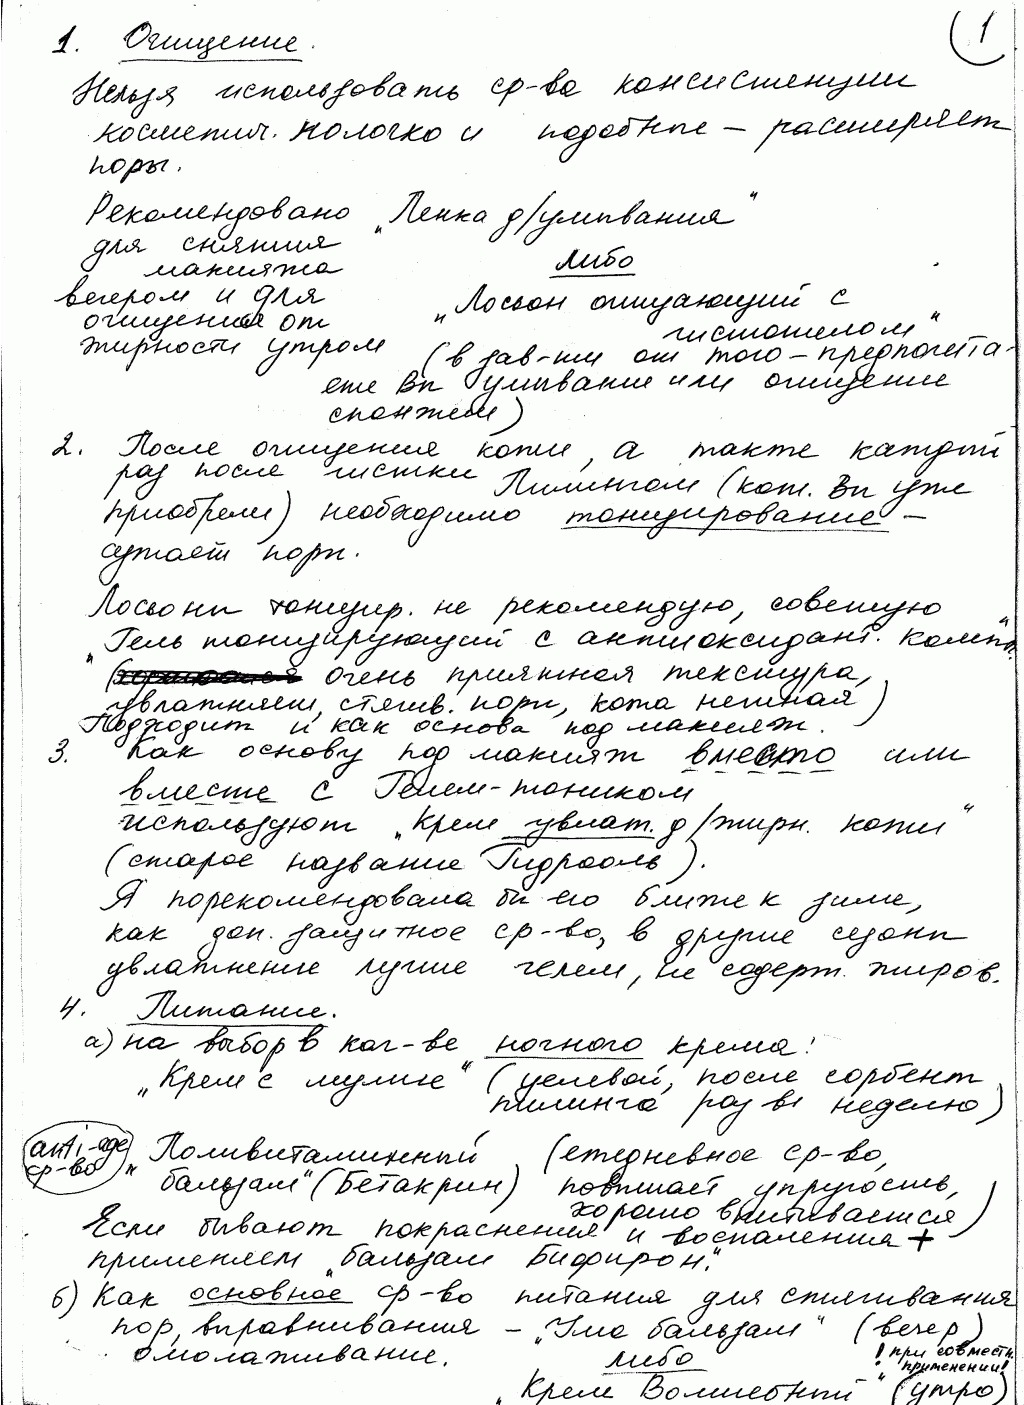 1
1. Очищение.
Нельзя использовать ср-ва консистенции
косметич. молочко и подобные – расширяет
поры.
Рекомендовано „Пенка д/умывания"
для снятия
макияжа
либо
вечером и для
„Лосьон очищающий с
очищения от
чистотелом"
жирности утром
(в зав-ти от того – предпочита-
ете Вы умывание или очищение
спонжем)
2. После очищения кожи, а также каждый
раз после чистки Пилингом (кот. Вы уже
приобрели) необходимо тонизирование –
сужает поры.
Лосьоны тонизир. не рекомендую, советую
„Гель тонизирующий с антиоксидант. компл."
( очень приятная текстура,
увлажняет, стягив. поры, кожа нежная)
Подходит и как основа под макияж.
3. Как основу под макияж вместо или
вместе с Гелем-тоником
используют „Крем увлаж. д/жирн. кожи"
(старое название Гидрооль).
Я порекомендовала бы его ближе к зиме,
как доп. защитное ср-во, в другие сезоны
увлажнение лучше гелем, не содерж. жиров.
4. Питание.
а) на выбор в кач-ве ночного крема:
„Крем с мумие" (целевой, после сорбент
пилинга раз в неделю)
anti-age
ср-во
„Поливитаминный (ежедневное ср-во,
бальзам" (Бетакрин) повышает упругость,
хорошо впитывается)
Если бывают покраснения и воспаления +
применяем „бальзам Бифирон".
б) Как основное ср-во питания для стягивания
пор, выравнивания – „Има бальзам" (вечер)
омолаживание.
либо
! при совместн.
применении!
„Крем Волшебный" (утро)